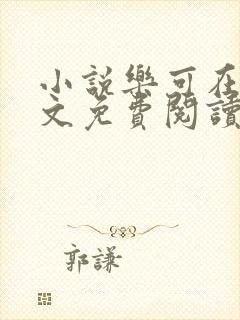 小說樂可在
文免費閱讀
郭謙